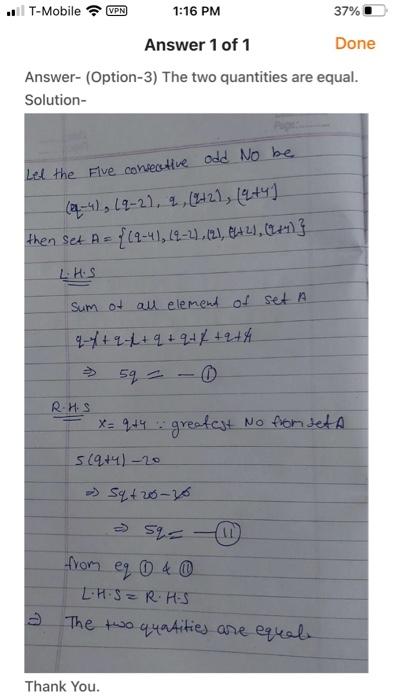 T-Mobile VPN 1:16 PM 37%
Answer 1 of 1 Done
Answer- (Option-3) The two quantities are equal.
Solution-
Let the Five consecutive odd No be
(q-4), (q-2), q, (q+2), (q+4)
then Set A = {(q-4), (q-2), (q), (q+2), (q+4)}
L.H.S
Sum of all element of set A
q-4+q-2+q+q+2+q+4
⇒ 5q = — ①
R.H.S
x = q+4 ∵ greatest No from set A
5(q+4)-20
⇒ 5q+20-20
⇒ 5q = — (11)
from eq ① & (11)
L.H.S = R.H.S
⇒ The two quatities are equal.
Thank You.